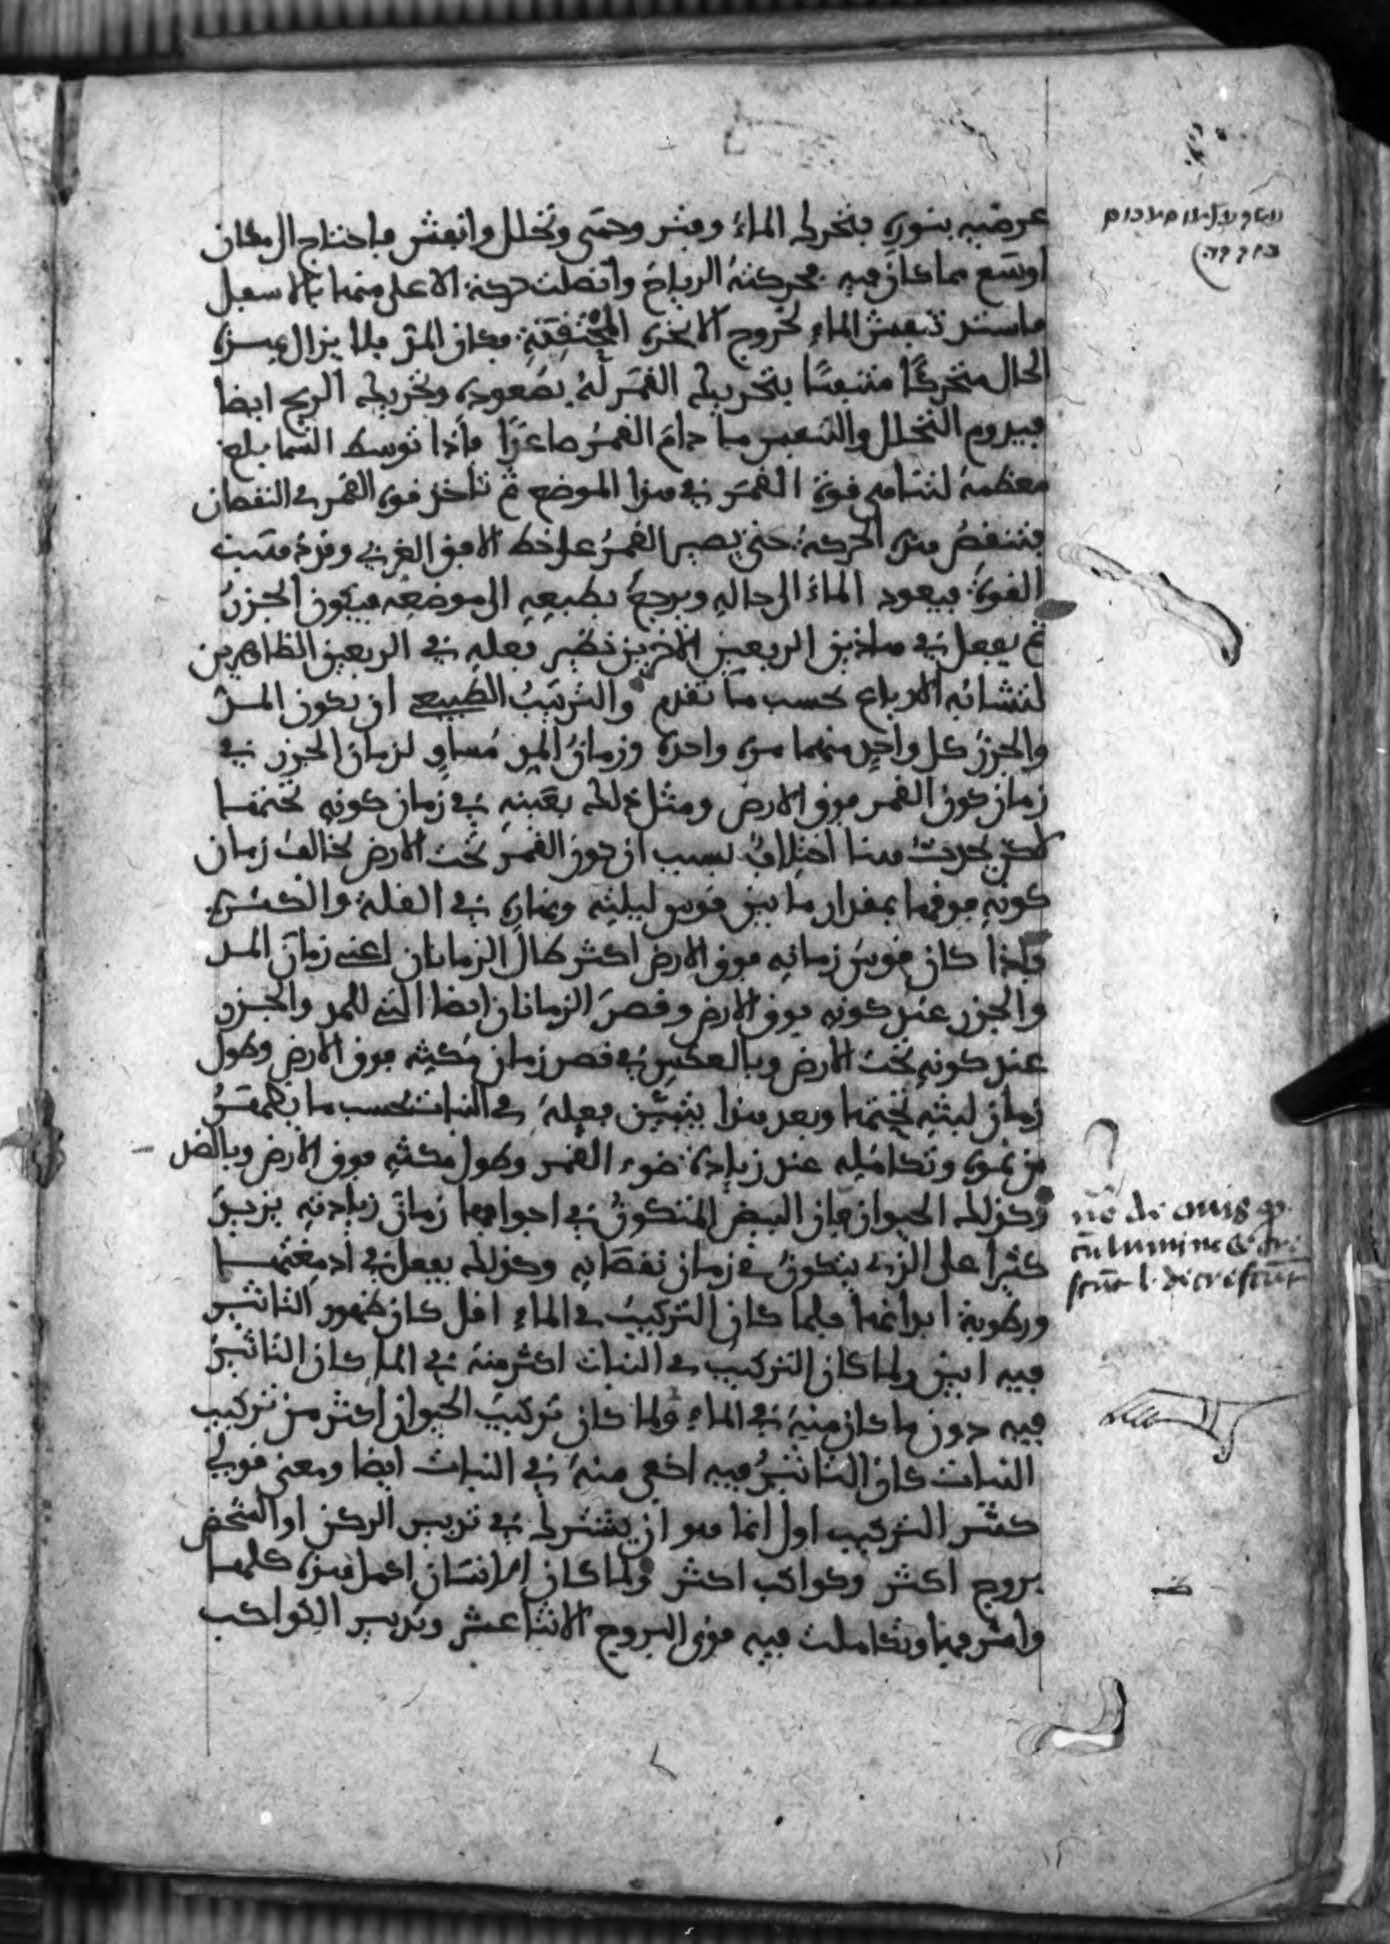 عرضيه بنوره فتحرك الماء وفتر وحمى وتخلل وانفش فاحتاج الى مكان
اوسع مما كان فيه فحركته الرياح واتصلت حركة الاعلى منها بالاسفل
فاشتد تنفس الماء لخروج الابخرة المختنقة فكان المد فلا يزال بهذه
الحال متحركا متنفسا بتحريك القمر له بصعوده وتحريك الريح ايضا
فيدوم التخلل والتنفس ما دام القمر صاعدا فاذا توسط السما بلغ
معظمه لتناهى قوة القمر في هذا الموضع ثم تاخذ قوة القمر في النقصان
فتنقص هذه الحركة حتى يصير القمر على خط الافق الغربي وقد
القوة فيعود الماء الى حاله ويرجع بطبعه الى موضعه فيكون الجزر
ثم يفعل في هاذين الربعين الاخرين نظير فعله في الربعين الظاهرين
لتشابه الارباع بحسب ما تقدم والترتيب الطبيعي ان يكون المد
والجزر كل واحد منهما مرة واحدة وزمان المد مساو لزمان الجزر في
زمان كون القمر فوق الارض ومثل ذلك بعينه في زمان كونه تحتها
لكن يحدث هنا اختلاف بسبب ان كون القمر تحت الارض يخالف زمان
كونه فوقها بمقدار ما بين قوس ليلته ونهاره في القلة والكثرة
فاذا كان قوس زمانه فوق الارض اكثر طال الزمانان اعني زمان المد
والجزر عند كونه فوق الارض وقصر الزمانان ايضا التى للمد والجزر
عند كونه تحت الارض وبالعكس في قصر زمان مكثه فوق الارض وطول
زمان لبثه تحتها وبعد هذا يتبين فعله في النبات بحسب ما يظهر
من نموه وتكامله عند زيادة ضوء القمر وطول مكثه فوق الارض وبالضد
وكذلك الحيوان فان البيض المتكون في اجوافها زمان زيادته يزيد
كثيرا على الذي يتكون في زمان نقصانه وكذلك يفعل في ادمغتها
ورطوبة ابدانها فلما كان التركيب في الماء اقل كان ظهور التاثير
فيه ابين ولما كان التركيب في النبات اكثر منه في الماء كان التاثير
فيه دون ما كان منه في الماء ولما كان تركيب الحيوان اكثر من تركيب
النبات كان التاثير فيه اخفى منه في النبات ايضا ومعنى قولي
كثر التركيب اول انما هو ان يشترك في تدبير الركن او الشخص
بروج اكثر وكواكب اكثر ولما كان الانسان اكمل هذه كلها
واشرفها وتكاملت فيه قوى البروج الاثنا عشر وتدبير الكواكب